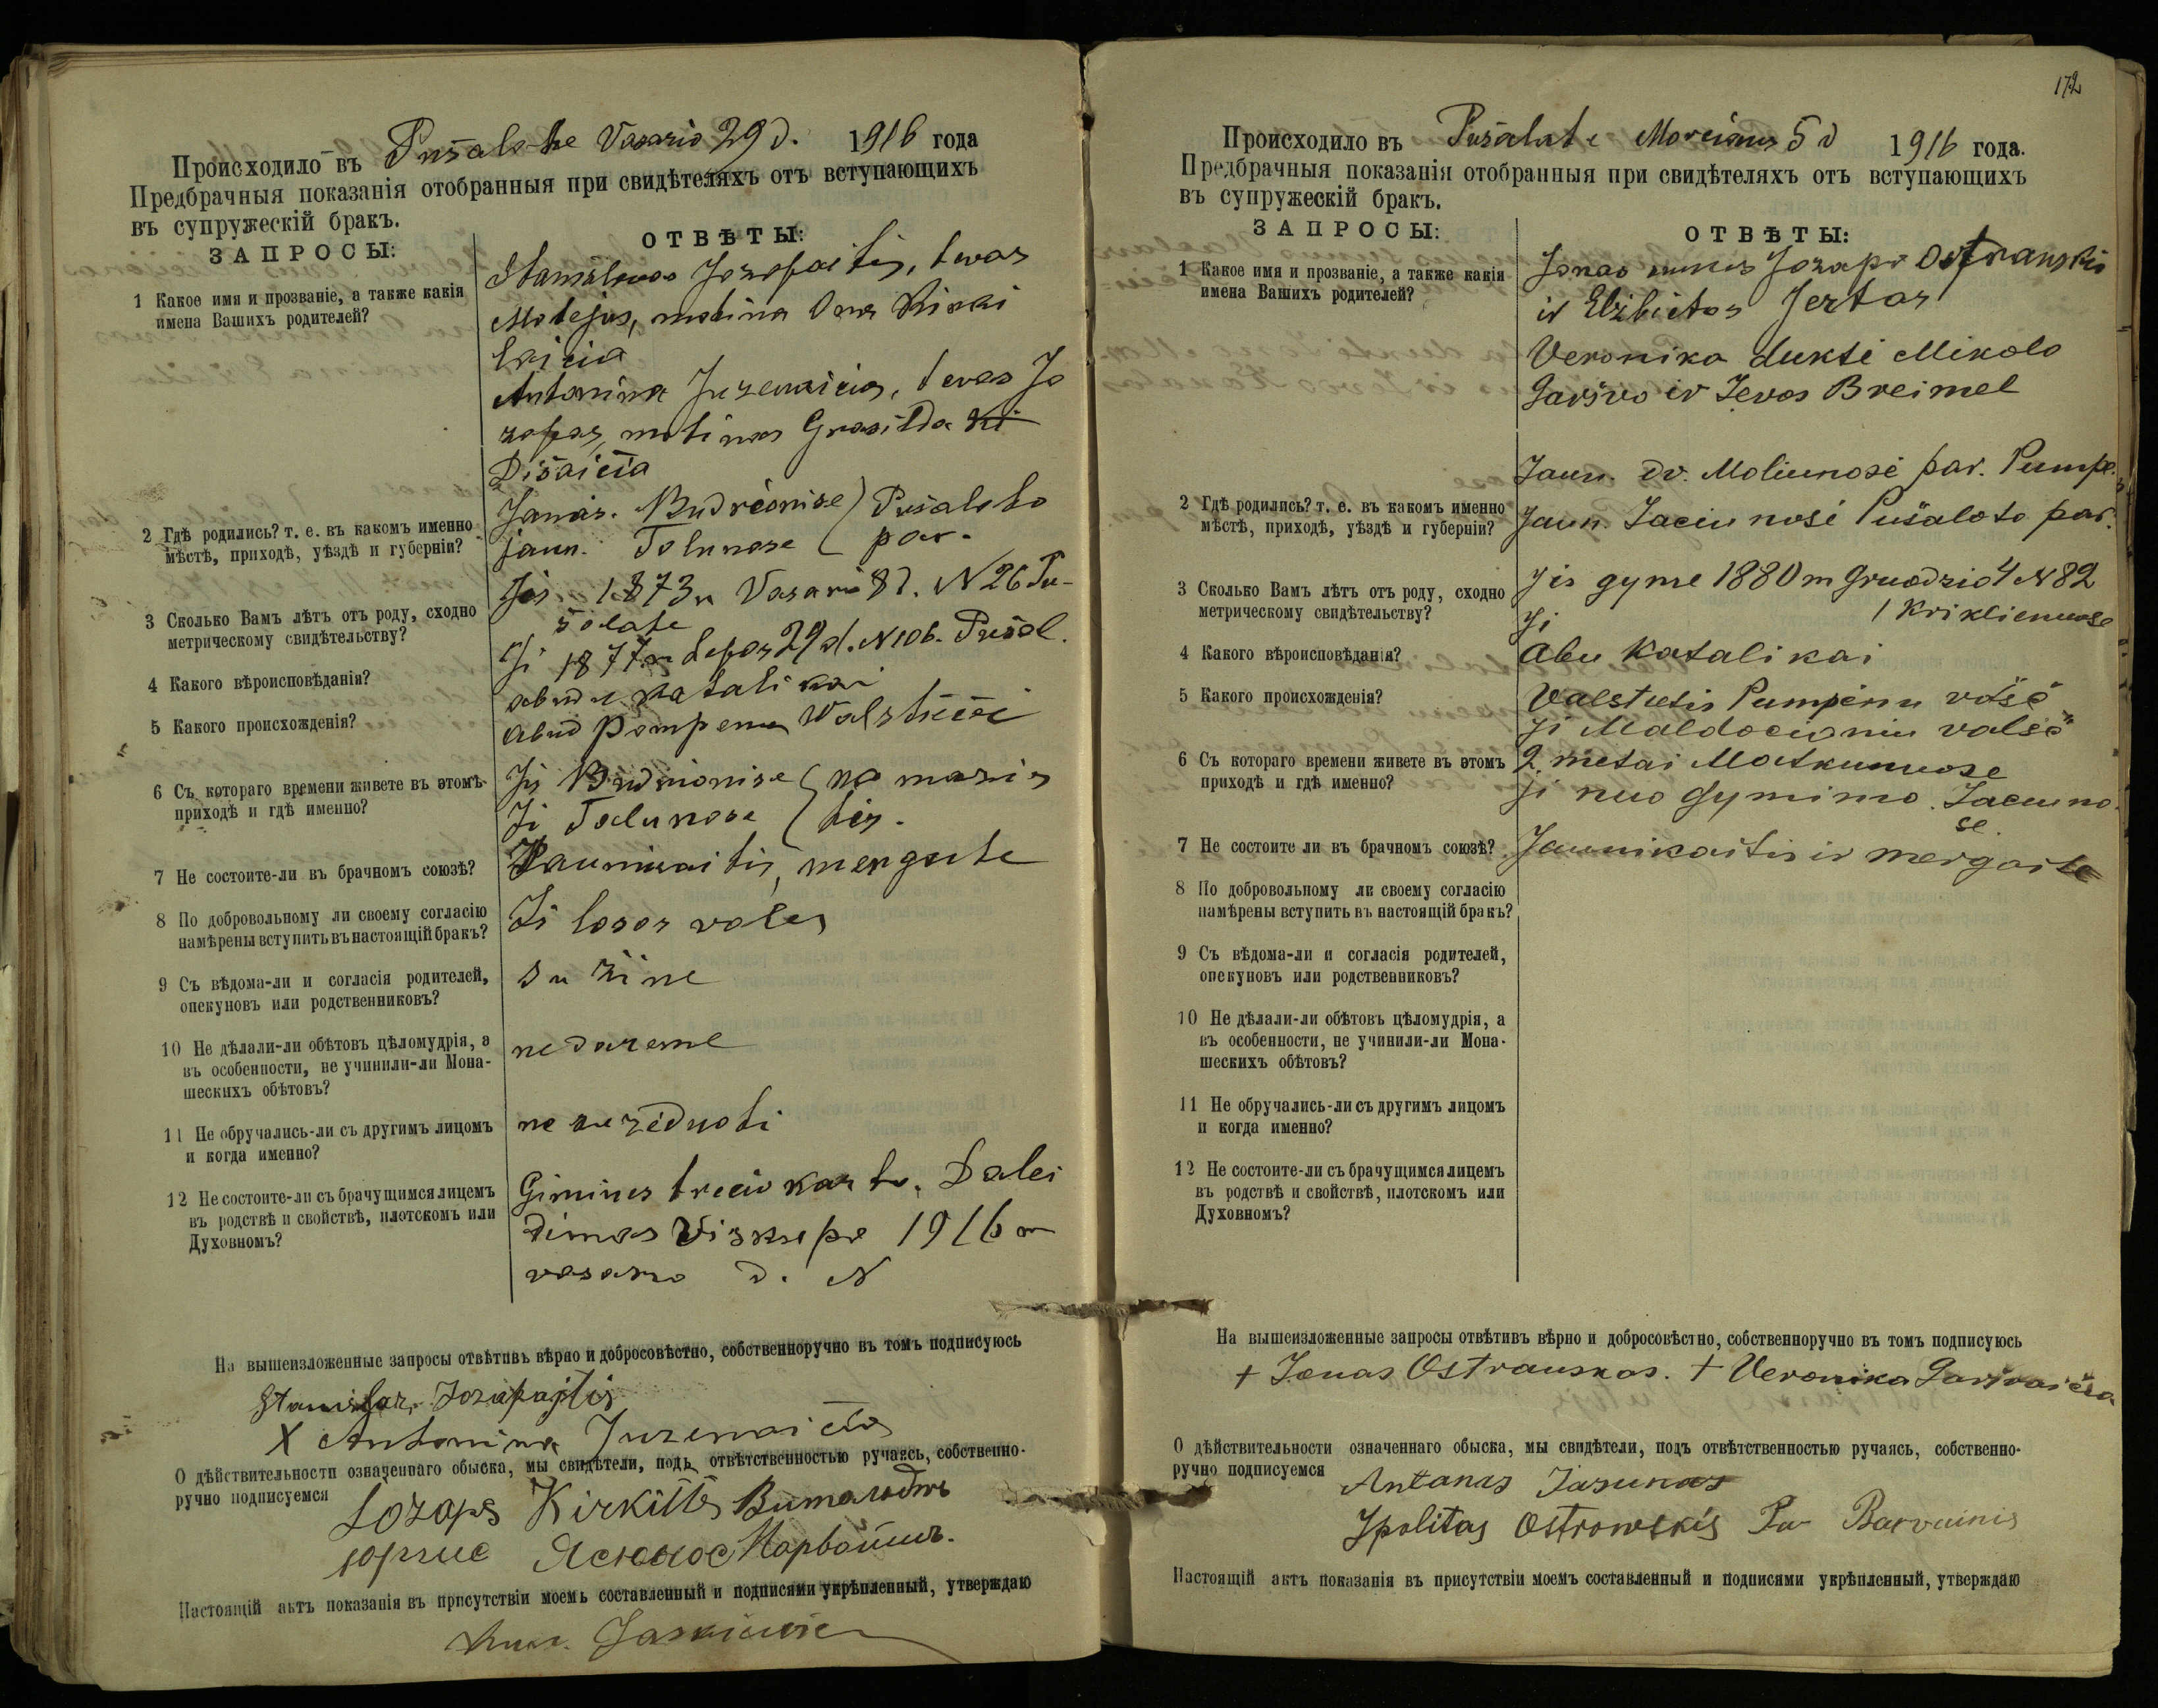 Происходило въ Pušalote Vasario 29 d. 1916 года
Предбрачныя показанія отобранныя при свидѣтеляхъ отъ вступающихъ
въ супружескій бракъ.
ЗАПРОСЫ:
ОТВѢТЫ:
1 Какое имя и прозваніе, а также какія
имена Вашихъ родителей?
Juozapaitis, tevas
Motejus, motina Ona
Antanina Juzenaičia, tevas Jo
zapas, motina Grasilda
Dišaičia
2 Гдѣ родились? т. е. въ какомъ именно
мѣстѣ, приходѣ, уѣздѣ и губерніи?
Budrionise ) Pušaloto
jaun. Tolunose ( par.
3 Сколько Вамъ лѣтъ отъ роду, сходно
метрическому свидѣтельству?
Jis 1873 m Vasario 8 d. N 26 Pu-
šolate
Ji 1877 m Lepos 29 d. N 106. Pušol.
4 Какого вѣроисповѣданія?
abudu katalikai
5 Какого происхожденія?
abud Pompenu
6 Съ котораго времени живете въ этомъ
приходѣ и гдѣ именно?
Jis Budrionise ( no mazis
Ji Tolunose ( tes.
7 Не состоите-ли въ брачномъ союзѣ?
Jaunikaitis, mergaite
8 По добровольному ли своему согласію
намѣрены вступить въ настоящій бракъ?
Iš losos voles
9 Съ вѣдома-ли и согласія родителей,
опекуновъ или родственниковъ?
su žine
10 Не дѣлали-ли обѣтовъ цѣломудрія, а
въ особенности, не учинили-ли Мона-
шескихъ обѣтовъ?
nedareme
11 Не обручались-ли съ другимъ лицомъ
и когда именно?
ne su žieduoti
12 Не состоите-ли съ брачущимся лицемъ
въ родствѣ и свойствѣ, плотскомъ или
Духовномъ?
Gimines trecio karto. Dalei
dimas Viskupo 1916 m
vasario d. N
На вышеизложенные запросы отвѣтивъ вѣрно и добросовѣстно, собственноручно въ томъ подписуюсь
Stanislaz Jozapajtis
X Antonina Juzenaičia
О дѣйствительности означеннаго обыска, мы свидѣтели, подъ отвѣтственностью ручаясь, собственно-
ручно подписуемся
Jozaps Kirkilis
Юргис Ясюнос
Настоящій актъ показанія въ присутствіи моемъ составленный и подписями укрѣпленный, утверждаю
172
Происходило въ Pušalate Morciaus 5 d 1916 года.
Предбрачныя показанія отобранныя при свидѣтеляхъ отъ вступающихъ
въ супружескій бракъ.
ЗАПРОСЫ:
ОТВѢТЫ:
1 Какое имя и прозваніе, а также какія
имена Вашихъ родителей?
Jonas sunus Jozapo Ostrauskio
ir Elzbietos Jertos
Veronika dukti Mikolo
Garšvo ir Jevos Breimel
2 Гдѣ родились? т. е. въ какомъ именно
мѣстѣ, приходѣ, уѣздѣ и губерніи?
Jaun. dv. Moliunosi par. Pumpe.
Jaun. Jaciunosi Pušaloto par.
3 Сколько Вамъ лѣтъ отъ роду, сходно
метрическому свидѣтельству?
Jis gyme 1880 m Gruodzio 4 N 82
Ji / Kriklienuose
4 Какого вѣроисповѣданія?
Abu Katalikai
5 Какого происхожденія?
Valstietis Pumpėnu volsč
Ji Maldocioniu valsč
6 Съ котораго времени живете въ этомъ
приходѣ и гдѣ именно?
2 metai Motkunuose
ji nuo gymimo Jaciuno-
se.
7 Не состоите ли въ брачномъ союзѣ?
Jaunikaitis ir mergaite
8 По добровольному ли своему согласію
намѣрены вступить въ настоящій бракъ?
9 Съ вѣдома-ли и согласія родителей,
опекуновъ или родственниковъ?
10 Не дѣлали-ли обѣтовъ цѣломудрія, а
въ особенности, не учинили-ли Мона-
шескихъ обѣтовъ?
11 Не обручались-ли съ другимъ лицомъ
и когда именно?
12 Не состоите-ли съ брачущимся лицемъ
въ родствѣ и свойствѣ, плотскомъ или
Духовномъ?
На вышеизложенные запросы отвѣтивъ вѣрно и добросовѣстно, собственноручно въ томъ подписуюсь
+ Jonas Ostrauskas. + Veronika Garšvaičia
О дѣйствительности означеннаго обыска, мы свидѣтели, подъ отвѣтственностью ручаясь, собственно-
ручно подписуемся
Antanas Jasunas
Ipolitas Ostrowskis
Настоящій актъ показанія въ присутствіи моемъ составленный и подписями укрѣпленный, утверждаю